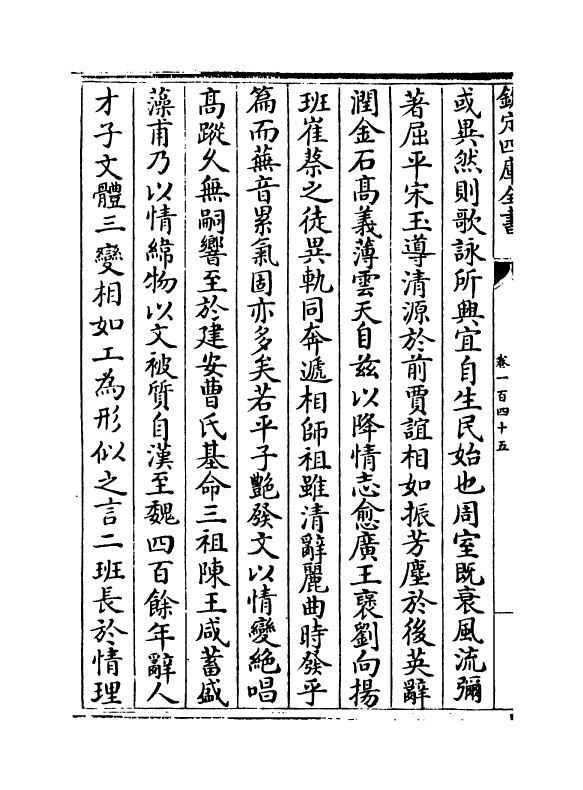 欽定四庫全書
卷一百四十五
或異然則歌詠所興宜自生民始也周室既衰風流彌
著屈平宋玉導清源於前賈誼相如振芳塵於後英辭
潤金石髙義薄雲天自兹以降情志愈廣王褒劉向揚
班崔蔡之徒異軌同奔遞相師祖雖清辭麗曲時發乎
篇而蕪音累氣固亦多矣若平子艷發文以情變絶唱
髙蹤久無嗣響至於建安曹氏基命三祖陳王咸蓄盛
藻甫乃以情緯物以文被質自漢至魏四百餘年辭人
才子文體三變相如工為形似之言二班長於情理